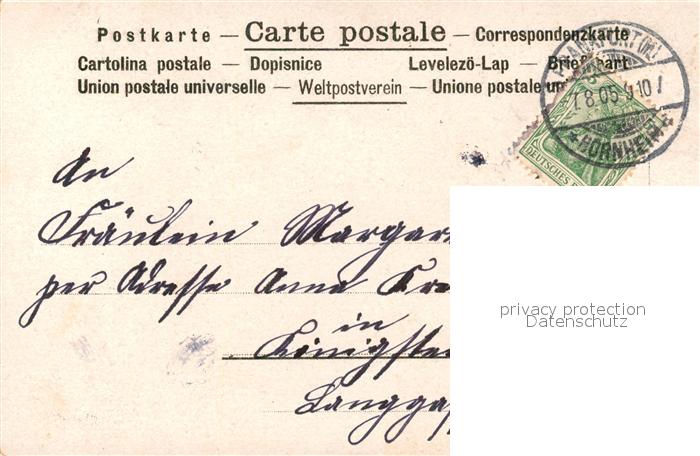 Postkarte — Carte postale — Correspondenzkarte
Cartolina postale — Dopisnice Levelező-Lap — Briefkaart
Union postale universelle — Weltpostverein — Unione postale un
FRANKFURT (M.)
7.8.05.
* BORNHEIM *
DEUTSCHES
An
Fräulein Margar
per Adresse Anna Kra
in
Königste
Langga
privacy protection
Datenschutz